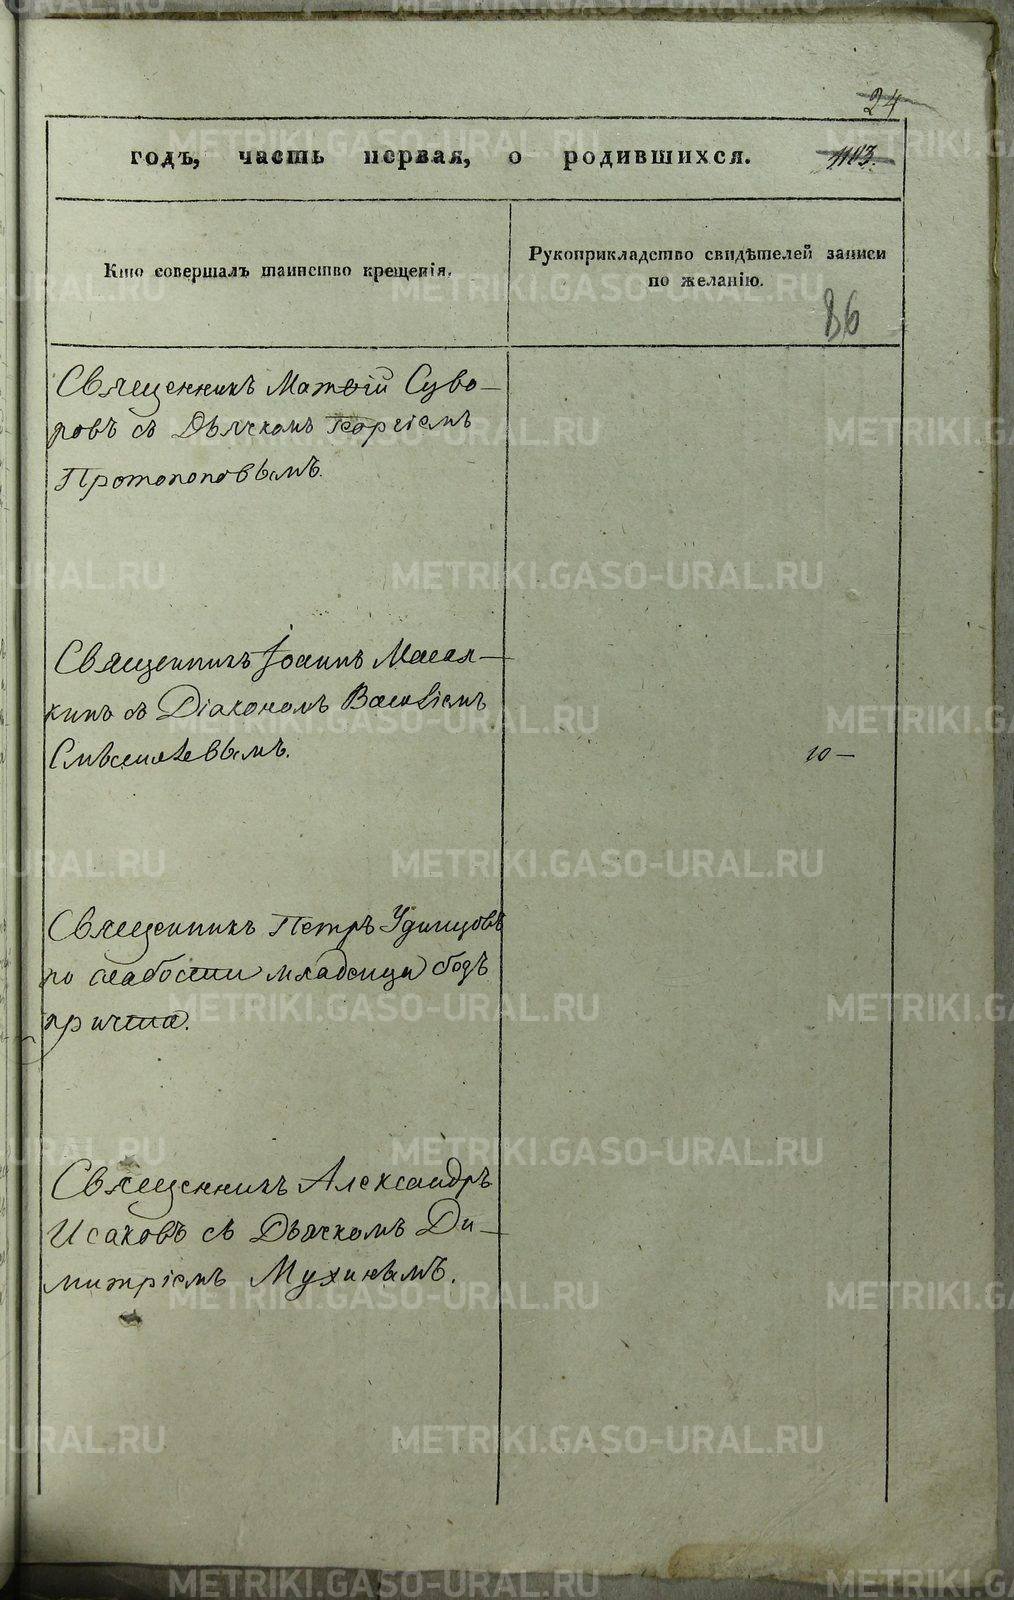 24
годъ, часть первая, о родившихся. 1103.
Кто совершалъ таинство крещенія.
Рукоприкладство свидѣтелей записи
по желанію.
86
Священникъ Матѳій Суво-
ровъ съ Дьячкомъ Георгіемъ
Протопоповымъ.
Священникъ Іоаннъ Масал-
кинъ съ Діакономъ Василіемъ
10 -
Священникъ Петръ Удинцовъ
по слабости младенца безъ
причта.
Священникъ Александръ
Исаковъ съ Дьячкомъ Ди-
митріемъ Мухинымъ.
METRIKI.GASO-URAL.RU